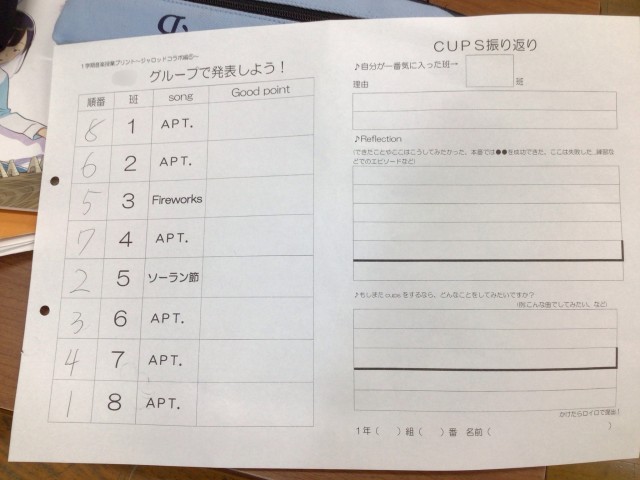 1学期音楽授業プリント~ジャロッドコラボ編⑤~
グループで発表しよう!
順番 班 song Good point
8 1 APT.
6 2 APT.
5 3 Fireworks
7 4 APT.
2 5 ソーラン節
3 6 APT.
4 7 APT.
1 8 APT.
CUPS振り返り
♪自分が一番気に入った班→ 班
理由
♪Reflection
(できたことやここはこうしてみたかった、本番では●●を成功できた、ここは失敗した、練習などでのエピソードなど)
♪もしまた cups をするなら、どんなことをしてみたいですか?
(例:こんな曲でしてみたい、など)
かけたらロイロで提出!
1年( )組( )番 名前( )